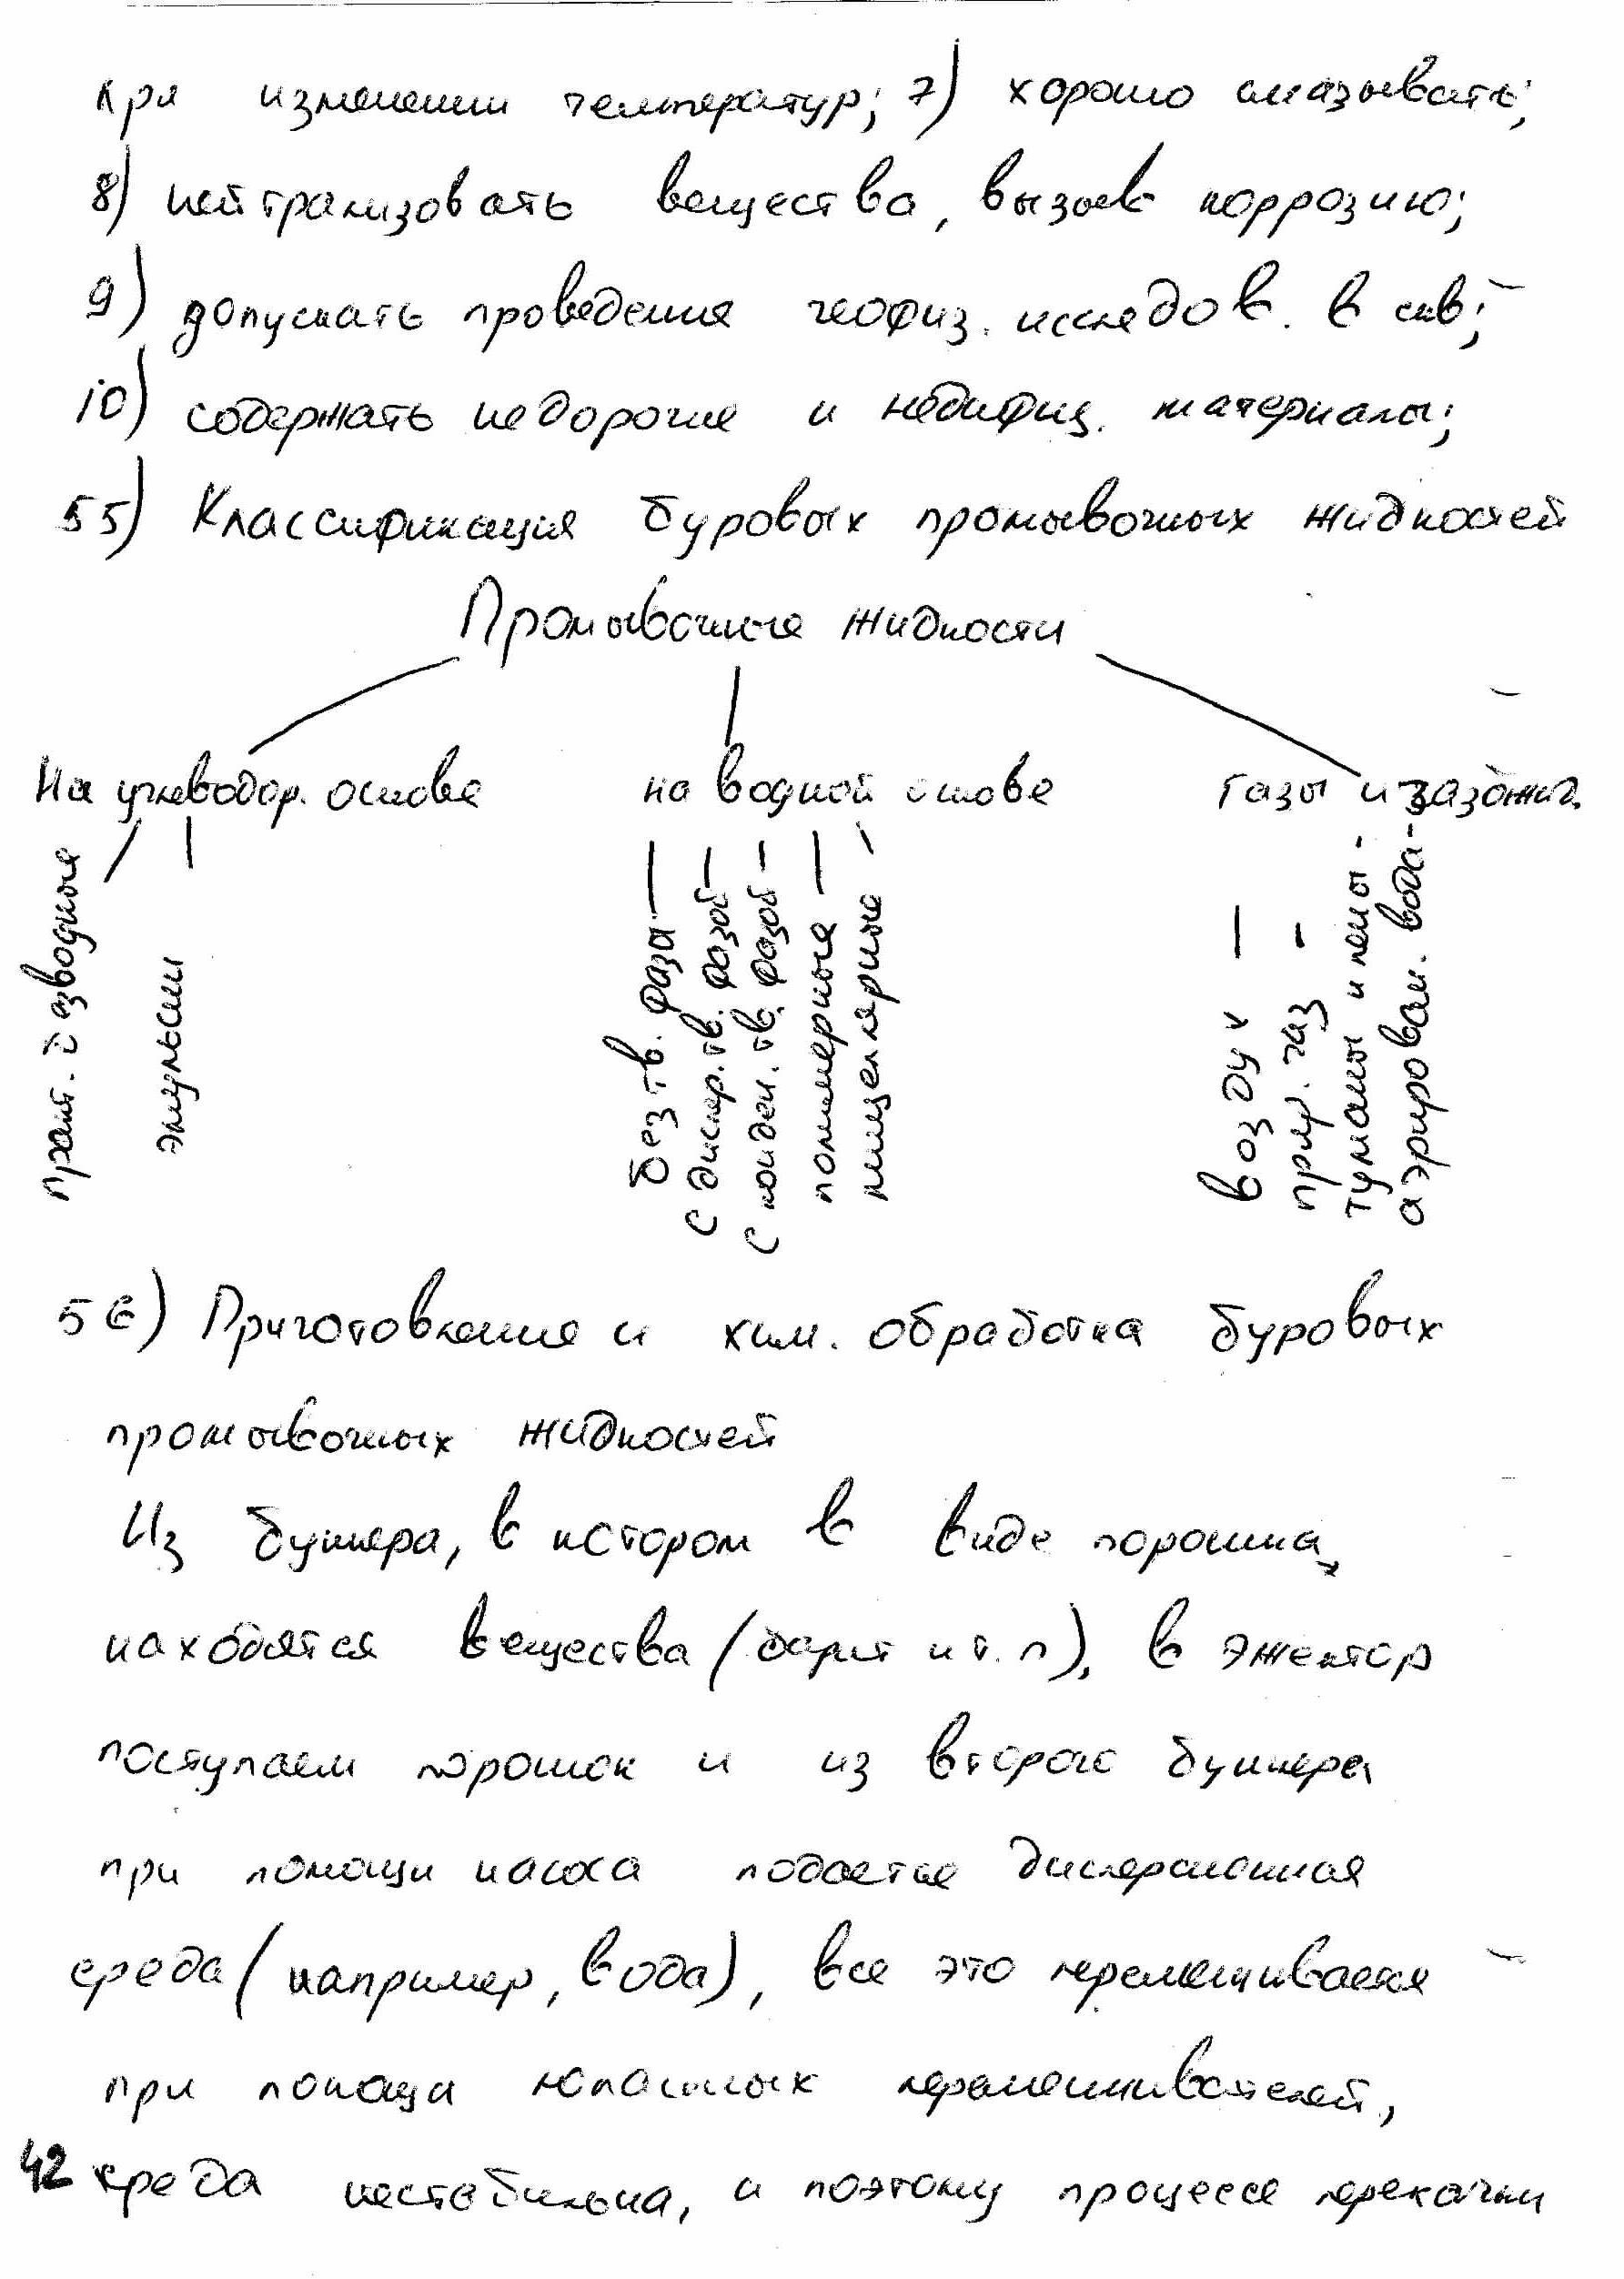 при изменении температур; 7) хорошо смазывать;
8) нейтрализовать вещества, вызыв коррозию;
9) допускать проведения геофиз. исследов. в скв;
10) содержать недорогие и недифиц. материалы;
55) Классификация буровых промывочных жидкостей
Промывочные жидкости
На углеводор. основе
на водной основе
газы и газожид.
практ. безводные
эмульсии
без тв. фаза
с диспер. тв. фазой
с конден. тв. фазой
полимерные
мицеллярные
воздух
прир. газ
туманы и пены
аэрирован. вода
56) Приготовление и хим. обработка буровых
промывочных жидкостей
Из бункера, в котором в виде порошка,
находятся вещества (барит и т. п), в эжектор
поступаем порошок и из второго бункера
при помощи насоса подается дисперсионная
среда (например, вода), все это перемешивается
при помощи лопастных перемешивателей,
42 среда нестабильна, и поэтому процессе перекачки